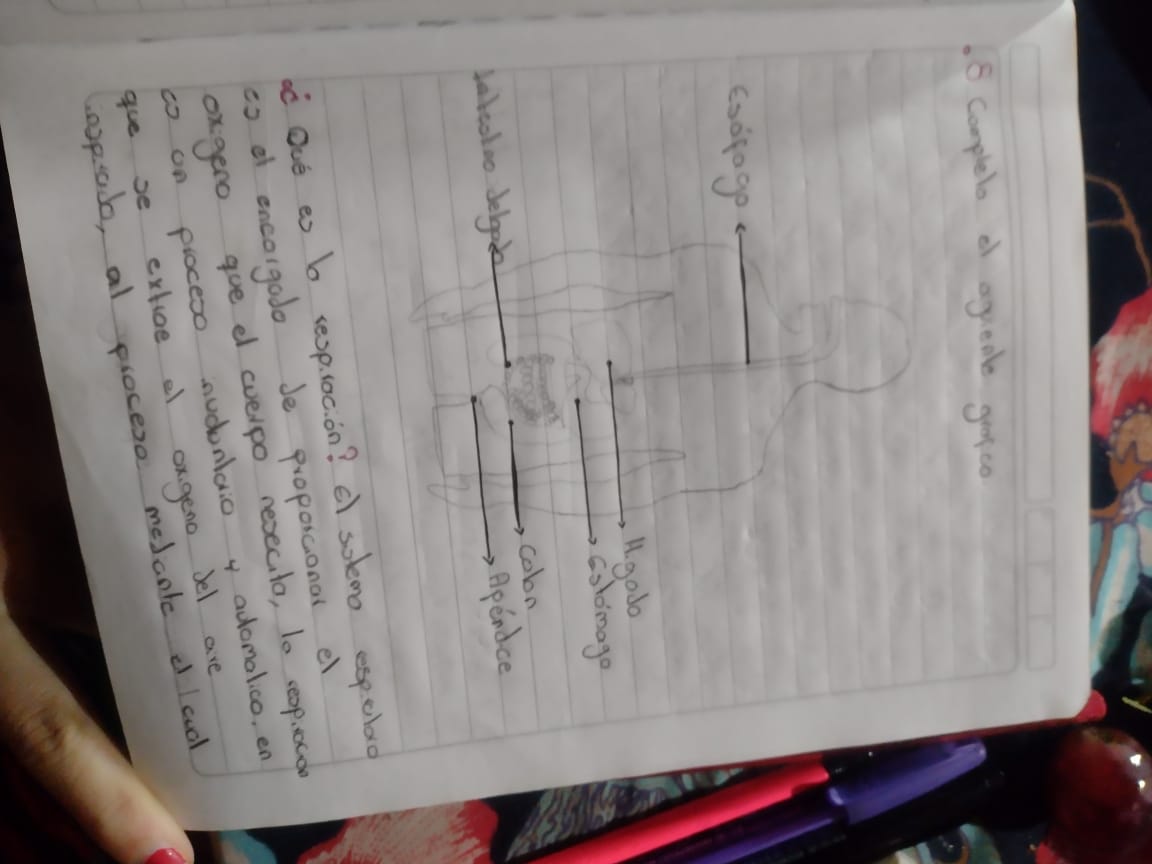 .8 Completo el siguiente grafico
Esófago
Higado
Estómago
Colon
Intestino delgado
Apéndice
¿ Qué es la respiración? El sistema espiratorio
es el encargado de proporcionar el
oxigeno que el cuerpo nesecita, la respiracion
es un proceso involuntario y automatico, en
que se extrae el oxigeno del aire
inspirado, al proceso mediante el cual